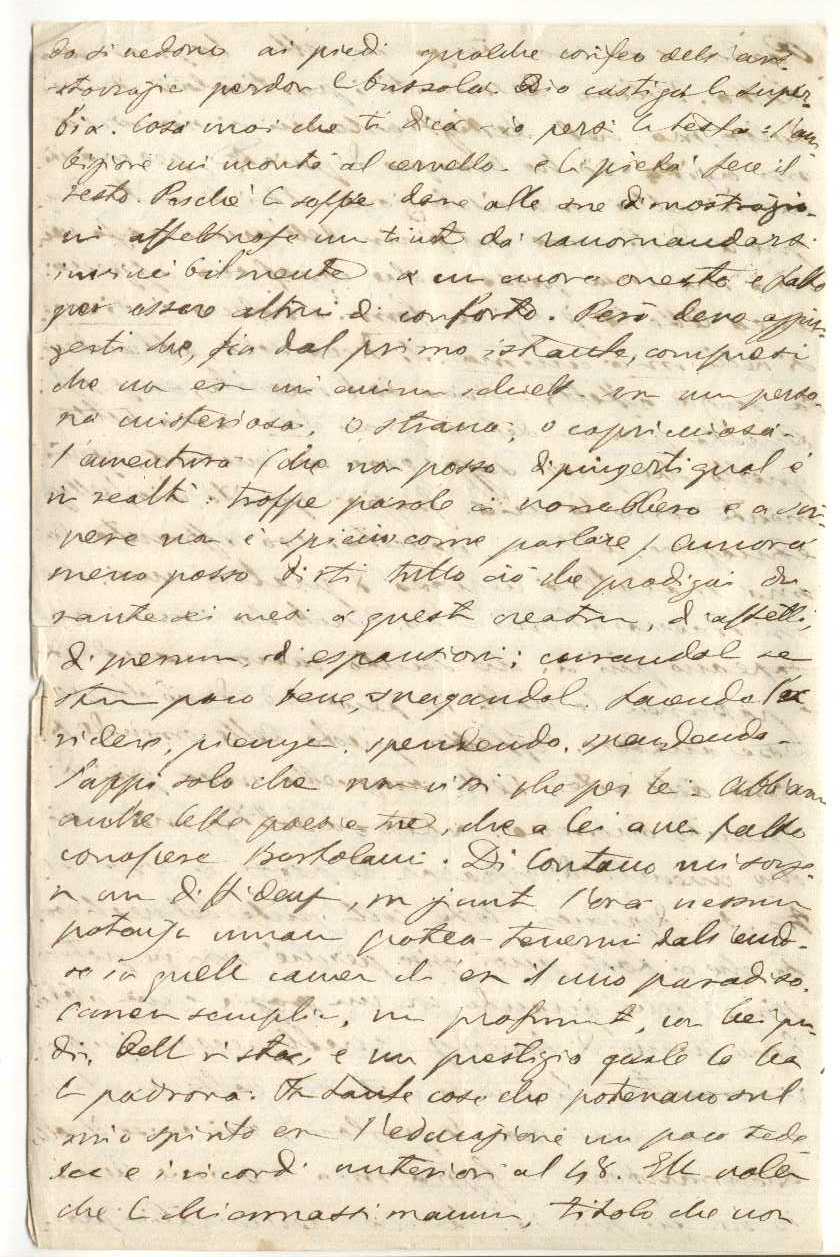 do si vedono ai piedi qualche corifeo dell'ari-
stocrazia perder la bussola. Dio castiga la super-
bia. Cosa vuoi che ti dica - io persi la testa: l'am-
bizione mi montò al cervello e la pietà fece il
resto. Poiché la seppe dare alle sue dimostrazio-
ni affettuose un tint da raccomandarsi
invincibilmente a un cuore onesto e fatto
per essere altrui di conforto. Però devo aggiun-
gerti che, fin dal primo istante, compresi
che non era un anima schietta. Era una perso-
na misteriosa, o strana, o capricciosa -
l'aventura (che non posso dipingerti qual è
in realtà: troppe parole ci vorrebbero e a scri-
vere non è spiccio come parlare) ancora
meno posso dirti tutto ciò che prodigai du-
rante sei mesi a questa creatura, d'affetti,
di premure, di espansioni; curandola se
stava poco bene, svagandola. facendola
ridere, piangere. spendendo, spendendo -
Sappi solo che non vissi che per lei - Abbiam
anche letto poesie tue, che a lei avea fatto
conoscere Bortolani. Di lontano mi sorge-
va una diffidenza, ma giunta l'ora nessuna
potenza umana potea tenermi dall'anda-
re in quella camera che era il mio paradiso.
Camera semplice, ma profumata, con bei qua-
dri, bella vista, e un prestigio quale lo ha
la padrona. Fra tante cose che potevano sul
mio spirito era l'educazione un poco tede
sca e i ricordi anteriori al 48. Ella volea
che la chiamassi mamma, titolo che non